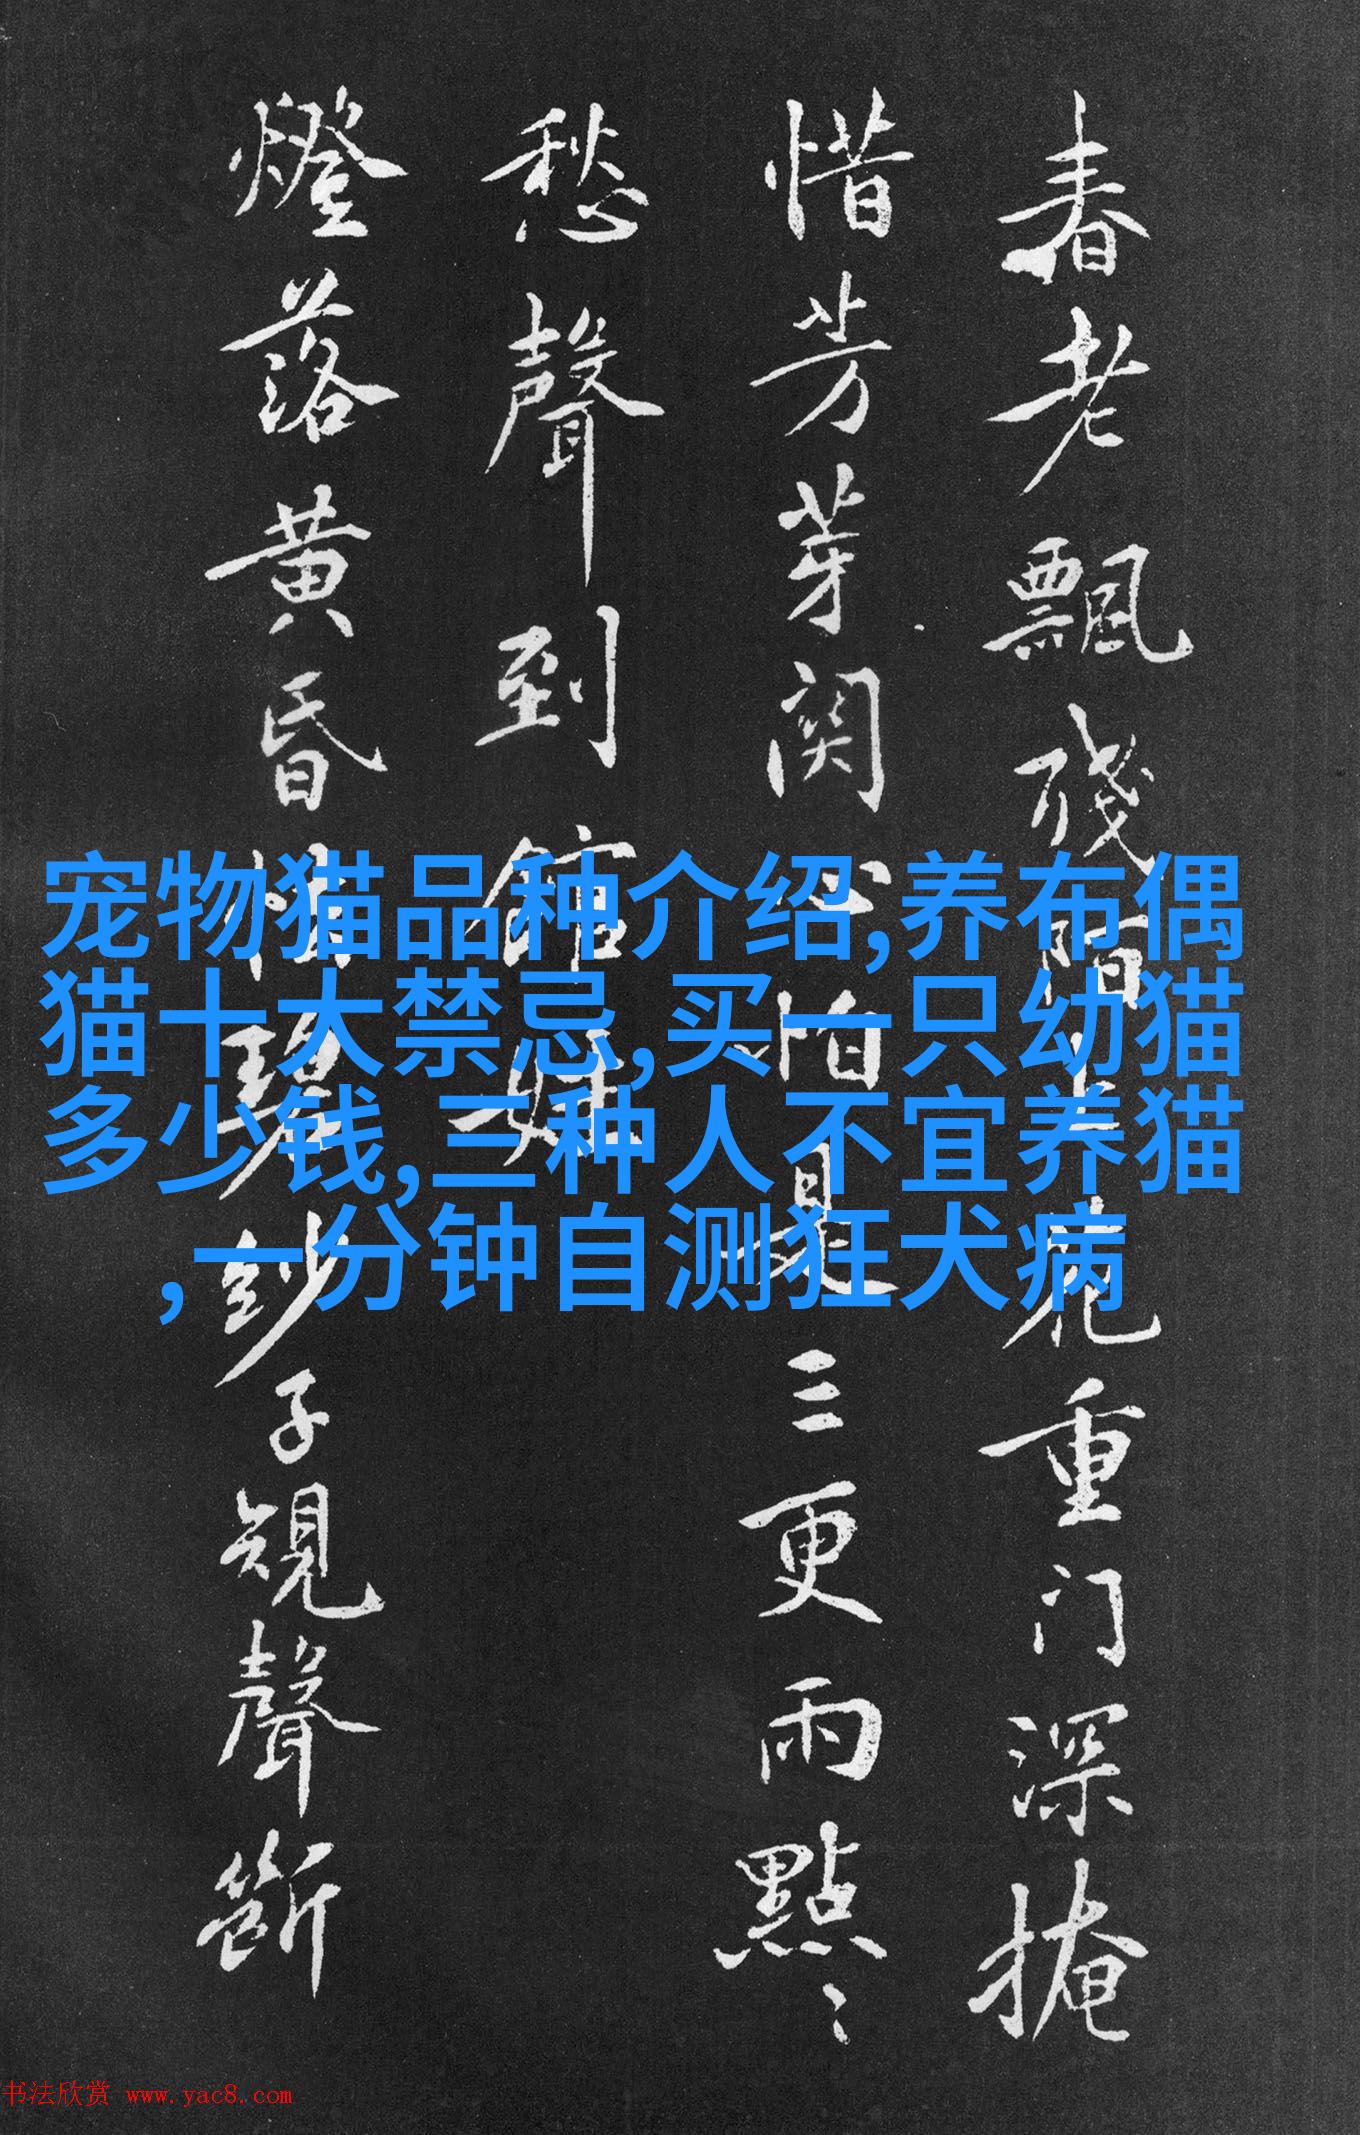 春老飄殘陌上花重门深掩
惜芳芽関心怕是三更雨點〻
愁聲到館娃
燈落黄昏碧紗子規聲斷
宠物猫品种介绍,养布偶
猫十大禁忌,买一只幼猫
多少钱,三种人不宜养猫
,一分钟自测狂犬病
书法欣赏 www.yac8.com